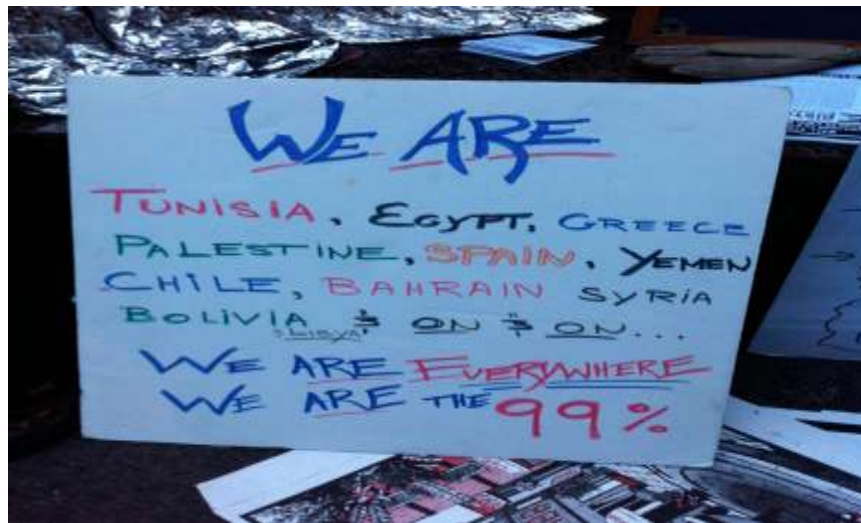 WE ARE
TUNISIA, EGYPT, GREECE
PALESTINE, SPAIN, YEMEN
CHILE, BAHRAIN SYRIA
BOLIVIA $ ON $ ON...
$ LIBYA,
WE ARE EVERYWHERE
WE ARE THE 99%